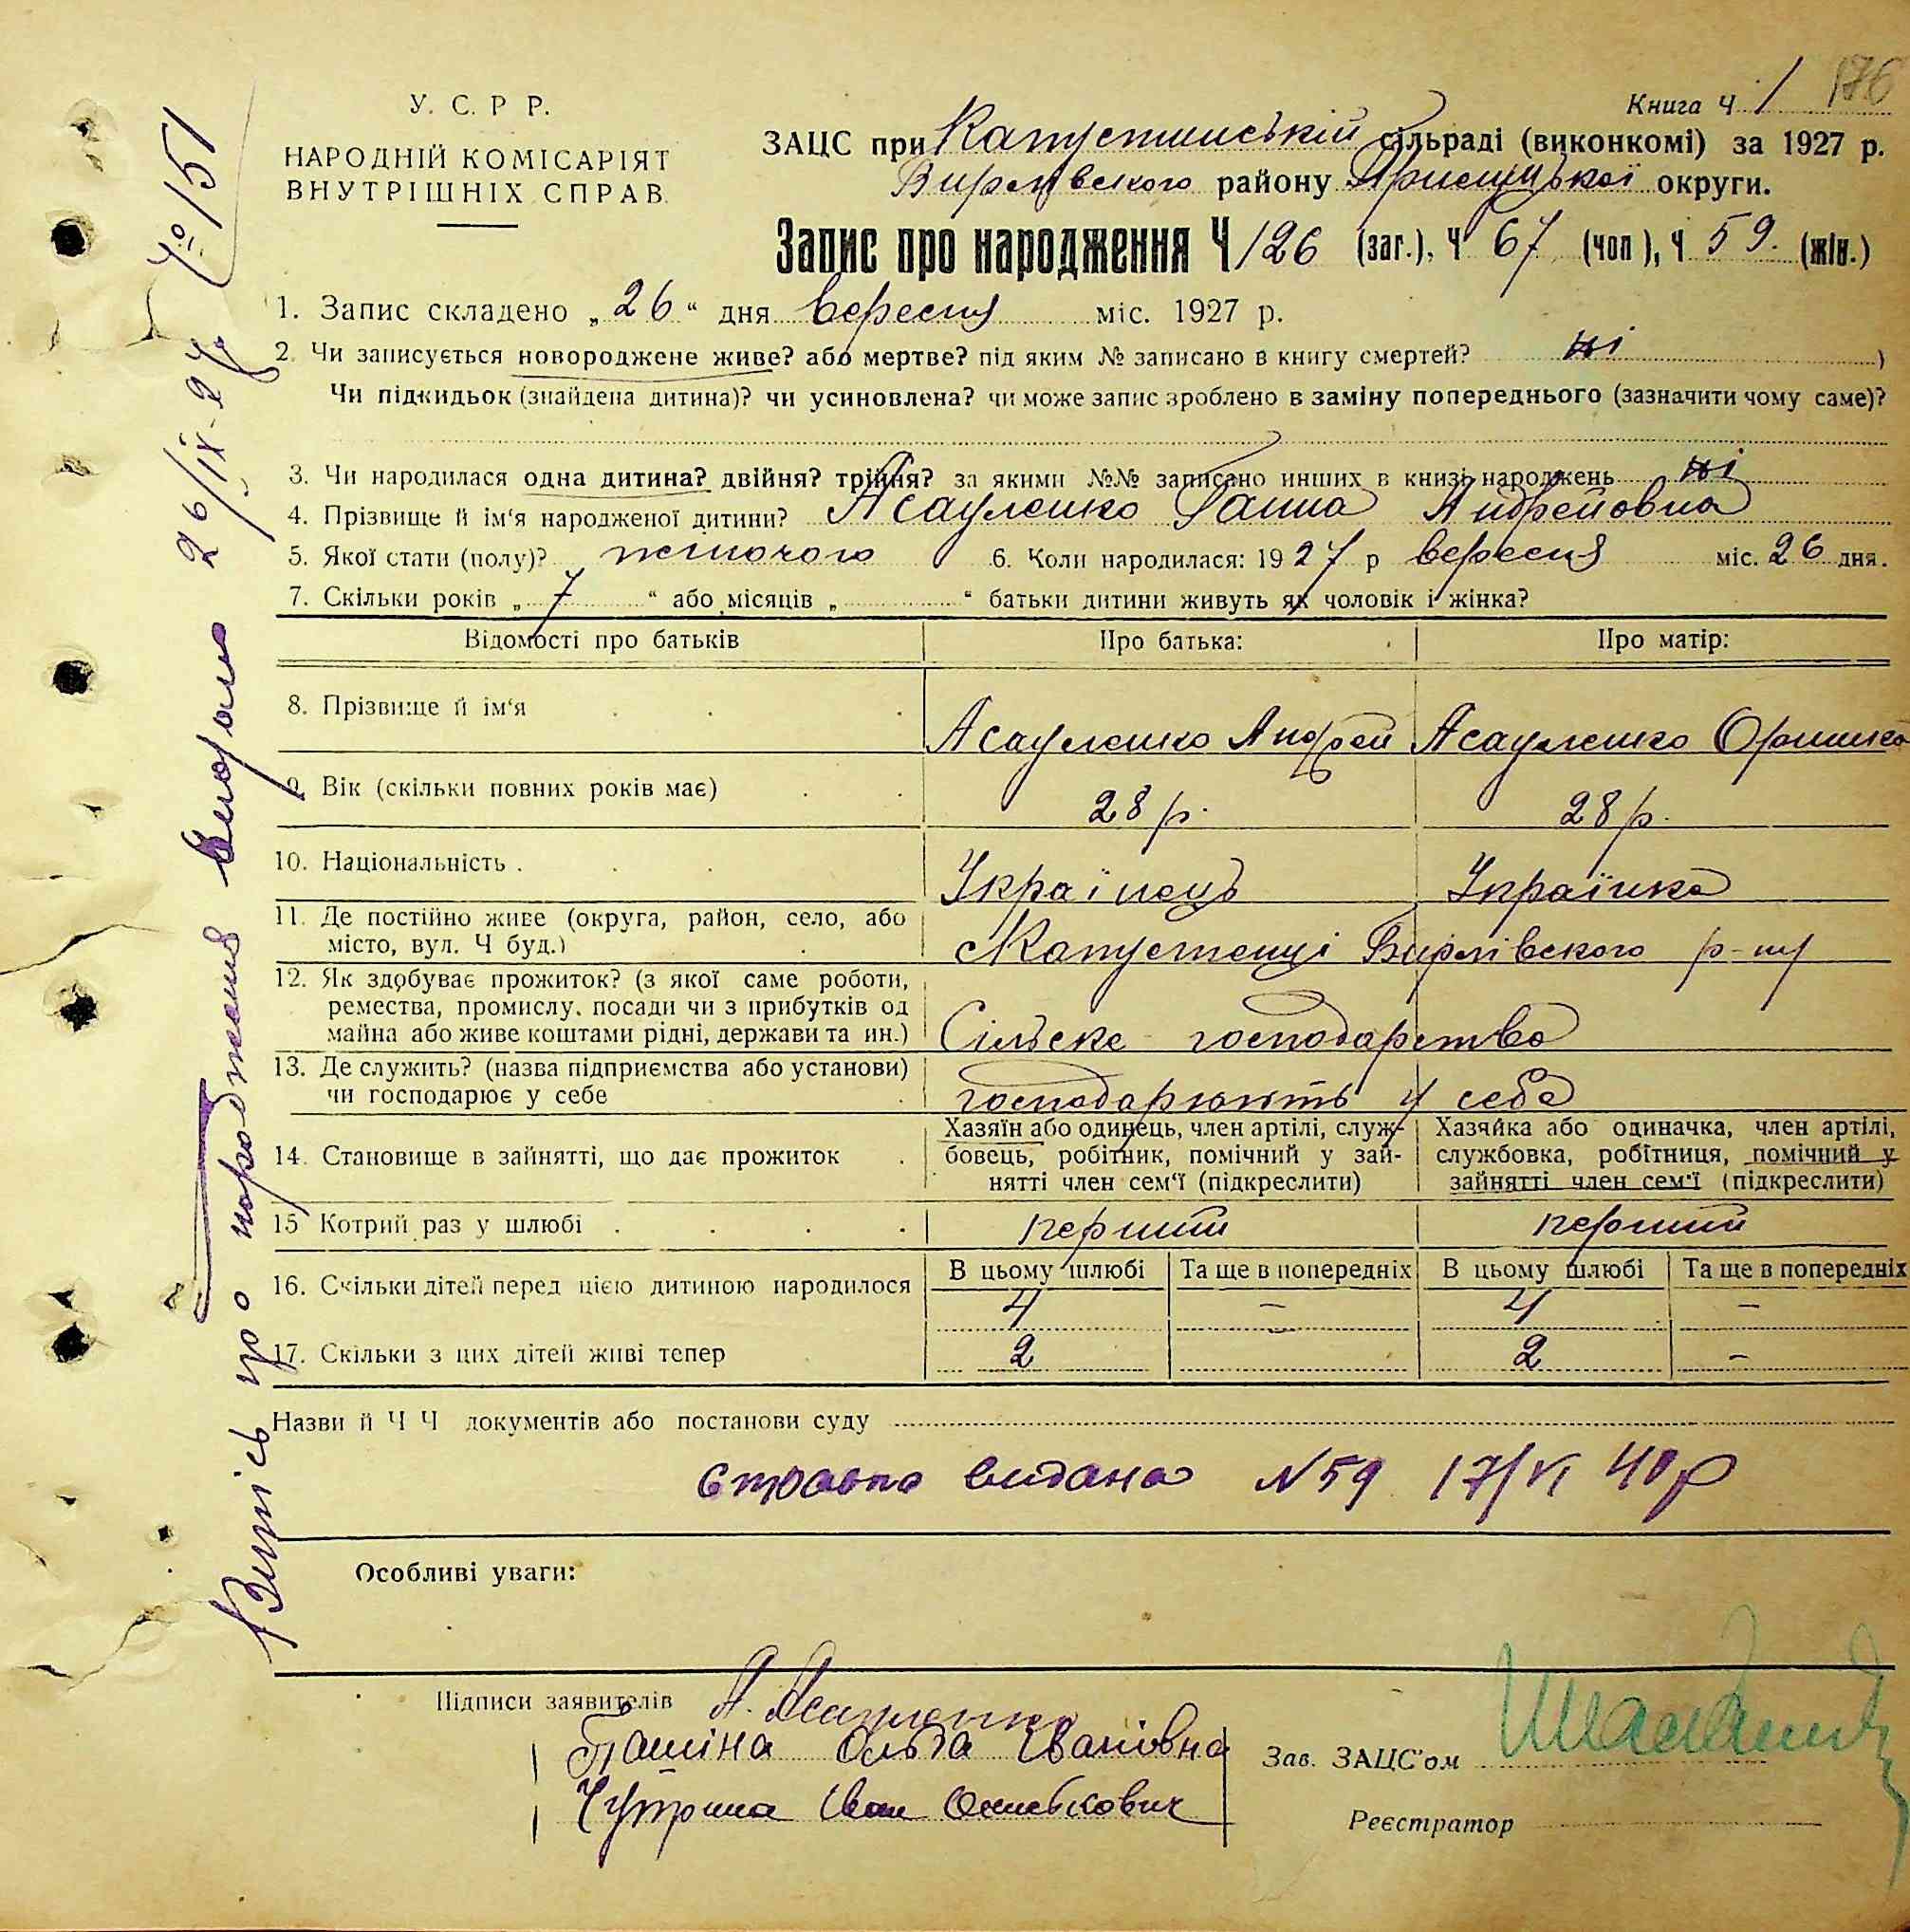 Книга Ч 1 176
У. С. Р. Р.
НАРОДНІЙ КОМІСАРІЯТ
ВНУТРІШНІХ СПРАВ.
ЗАЦС при Капустинській сільраді (виконкомі) за 1927 р.
району округи.
Запис про народження Ч 126 (заг.), Ч 67 (чол), Ч 59. (жін.)
1. Запис складено „ 26 “ дня вересня міс. 1927 р.
2. Чи записується новороджене живе? або мертве? під яким № записано в книгу смертей? ні )
Чи підкидьок (знайдена дитина)? чи усиновлена? чи може запис зроблено в заміну попереднього (зазначити чому саме)?
3. Чи народилася одна дитина? двійня? трійня? за якими №№ записано инших в книзі народжень ні
4. Прізвище й ім‘я народженої дитини? Асауленко Ганна Андрейовна
5. Якої стати (полу)? жіночого 6. Коли народилася: 1927 р вересня міс. 26 дня.
7. Скільки років „ 7 “ або місяців „ “ батьки дитини живуть як чоловік і жінка?
Відомості про батьків Про батька: Про матір:
8. Прізвище й ім‘я Асауленко Андрей Асауленко Оришка
9. Вік (скільки повних років має) 28 р. 28 р.
10. Національність Українець Українка
11. Де постійно живе (округа, район, село, або
місто, вул. Ч буд.) с Капустенці р-ну
12. Як здобуває прожиток? (з якої саме роботи,
ремества, промислу, посади чи з прибутків од
майна або живе коштами рідні, держави та ин.) Сільске господарство
13. Де служить? (назва підприємства або установи)
чи господарює у себе господарюють у себе
14. Становище в зайнятті, що дає прожиток
Хазяїн або одинець, член артілі, служ-
бовець, робітник, помічний у зай-
нятті член сем‘ї (підкреслити)
Хазяйка або одиначка, член артілі,
службовка, робітниця, помічний у
зайнятті член сем‘ї (підкреслити)
15 Котрий раз у шлюбі перший перший
В цьому шлюбі Та ще в попередніх В цьому шлюбі Та ще в попередніх
16. Скільки дітей перед цією дитиною народилося 4 – 4 –
17. Скільки з цих дітей живі тепер 2 – 2 –
Назви й Ч Ч документів або постанови суду
видана N 59 17/VI 40 р
Особливі уваги:
Підписи заявителів А. Асауленко
Ольга Івановна
Іван
Зав. ЗАЦС‘ом
Реєстратор
Випісь про народження 26/IX-27 № 151